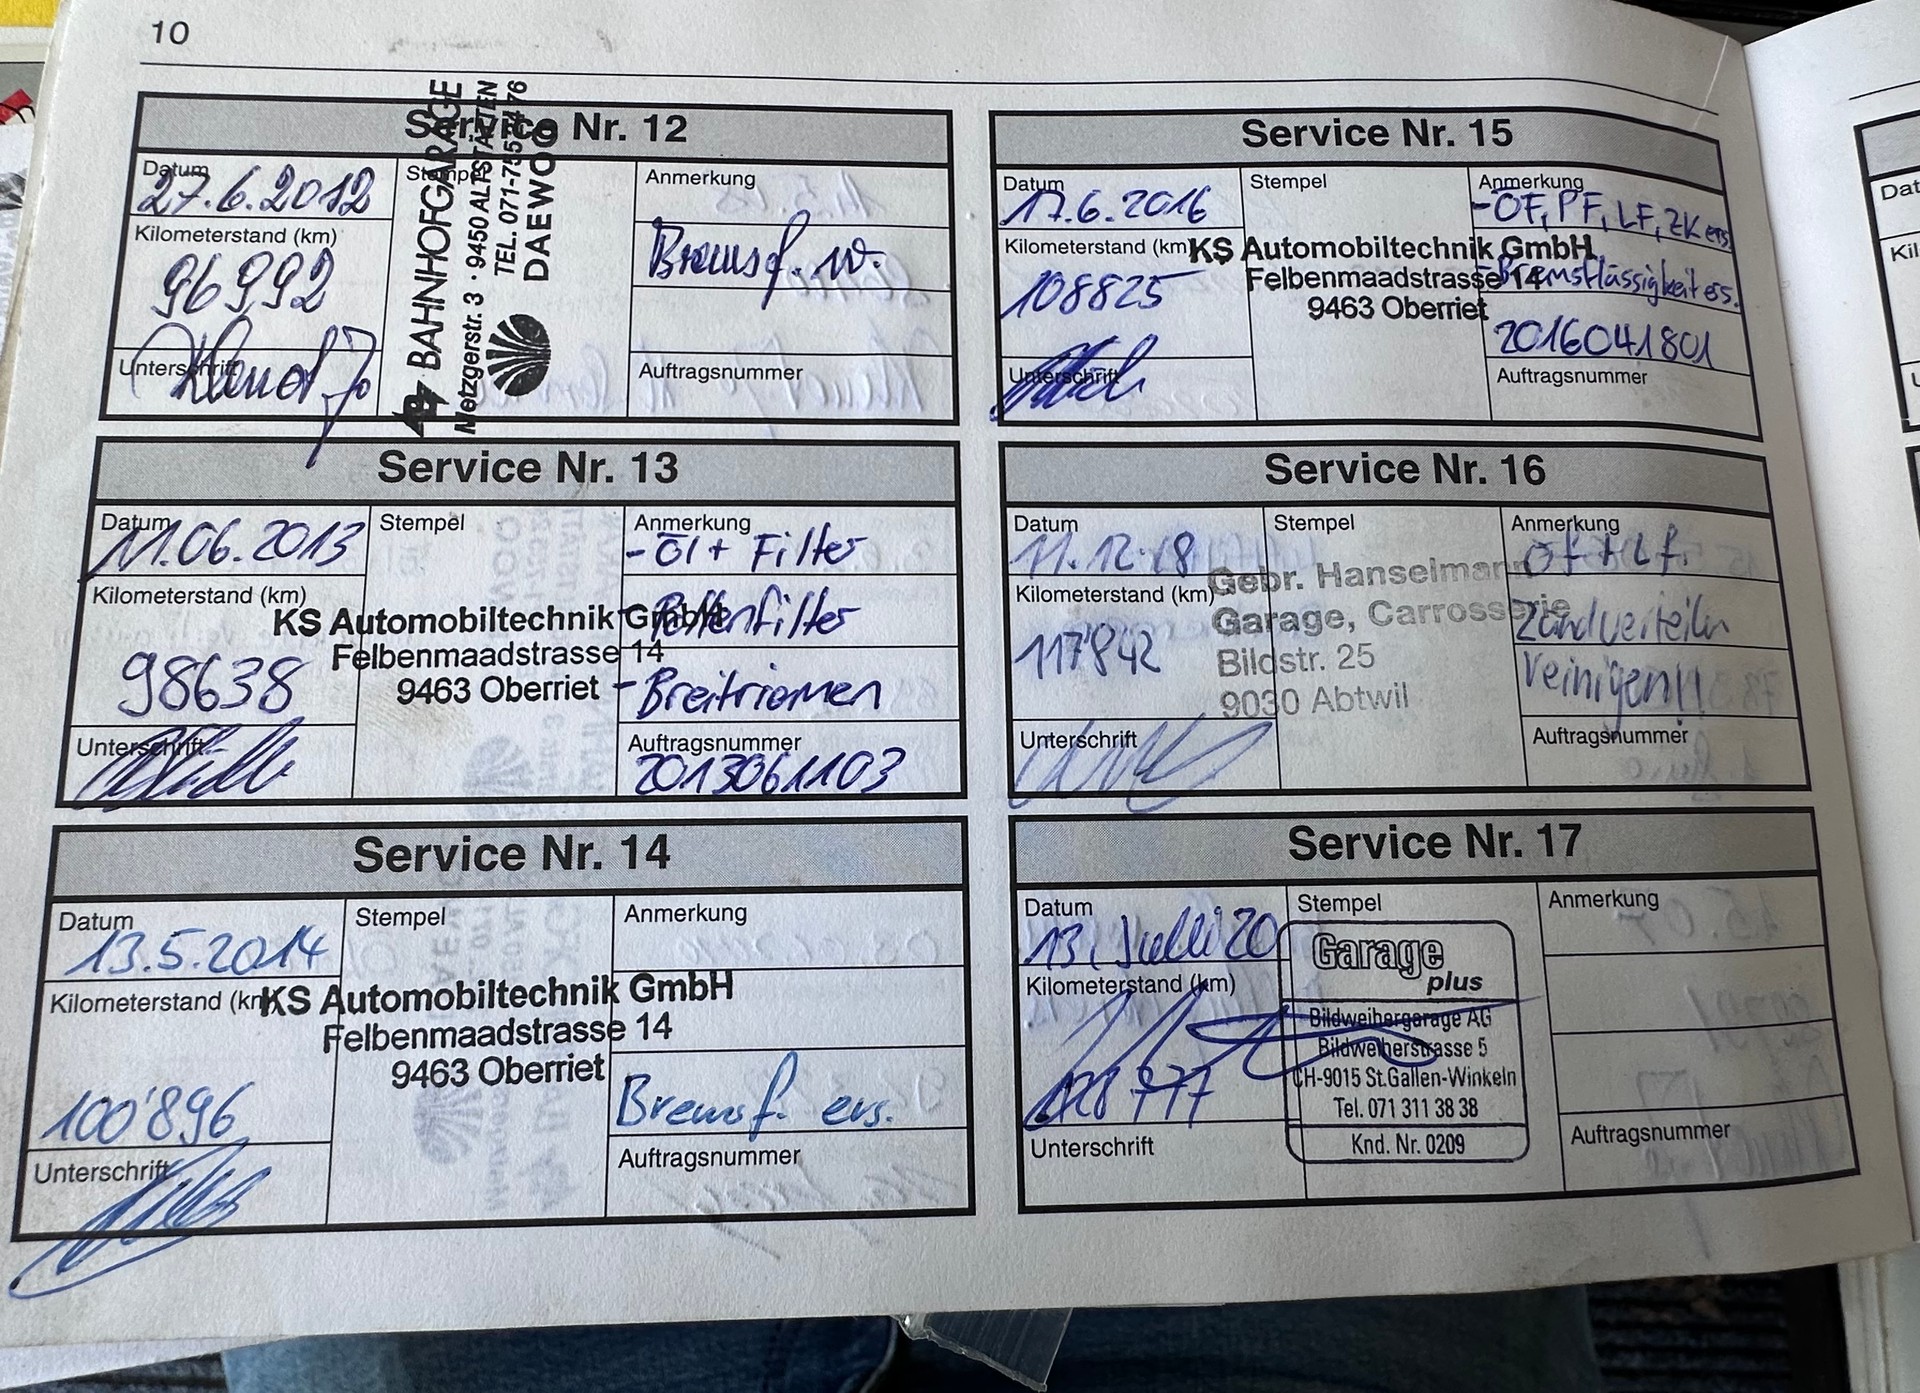 10
Service Nr. 12
Datum
27.6.2012
Stempel
Anmerkung
Kilometerstand (km)
96992
Bremsf. w.
Unterschrift
Auftragsnummer
BAHNHOFGARAGE
Metzgerstr. 3 · 9450 ALTSTÄTTEN
TEL. 071-755 76
DAEWOO
Service Nr. 13
Datum
11.06.2013
Stempel
Anmerkung
- Öl + Filter
Kilometerstand (km)
98638
- Pollenfilter
KS Automobiltechnik GmbH
Felbenmaadstrasse 14
9463 Oberriet
- Breitriemen
Unterschrift
Auftragsnummer
2013061103
Service Nr. 14
Datum
13.5.2014
Stempel
Anmerkung
Kilometerstand (km)
KS Automobiltechnik GmbH
Felbenmaadstrasse 14
9463 Oberriet
100'896
Bremsf. ers.
Unterschrift
Auftragsnummer
Service Nr. 15
Datum
17.6.2016
Stempel
Anmerkung
- ÖF, PF, LF, ZK ers
Kilometerstand (km)
108825
KS Automobiltechnik GmbH
Felbenmaadstrasse 14
9463 Oberriet
- Bremsflüssigkeit ers.
2016041801
Unterschrift
Auftragsnummer
Service Nr. 16
Datum
11.12.18
Stempel
Anmerkung
ÖF + LF.
Kilometerstand (km)
117'842
Gebr. Hanselmann
Garage, Carrosserie
Bildstr. 25
9030 Abtwil
Zündverteiler
reinigen!!
Unterschrift
Auftragsnummer
Service Nr. 17
Datum
13. Julli 20
Stempel
Anmerkung
Kilometerstand (km)
777
Garage
plus
Bildweihergarage AG
Bildweiherstrasse 5
CH-9015 St.Gallen-Winkeln
Tel. 071 311 38 38
Knd. Nr. 0209
Unterschrift
Auftragsnummer